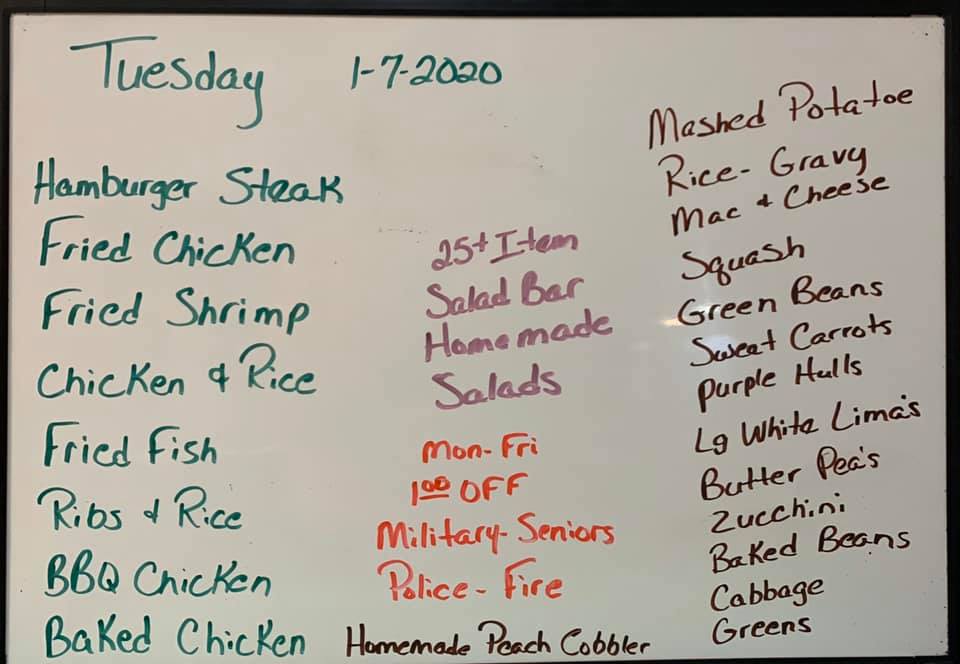 Tuesday 1-7-2020
Hamburger Steak
Fried Chicken
Fried Shrimp
Chicken & Rice
Fried Fish
Ribs & Rice
BBQ Chicken
Baked Chicken
25+ Item
Salad Bar
Homemade
Salads
Mon-Fri
1.00 OFF
Military-Seniors
Police-Fire
Homemade Peach Cobbler
Mashed Potatoe
Rice-Gravy
Mac & Cheese
Squash
Green Beans
Sweet Carrots
Purple Hulls
Lg White Lima's
Butter Pea's
Zucchini
Baked Beans
Cabbage
Greens